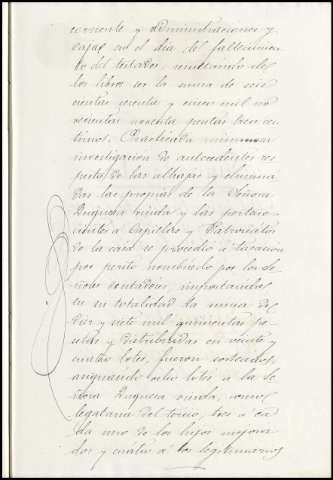 corriente y administraciones y
cajas en el dia del fallecimien
to del testador, resultando de
los libros ser la suma de seis
cientas treinta y cinco mil no
vecientas noventa pesetas tres cen
timos. Practicada minuciosa
investigacion de antecedentes res
pecto de las alhajas y elimina
das las propias de la Señora
Duquesa viuda y las pertene-
cientes á Capellas y Patronatos
de la casa se procedió á tasacion
por perito nombrado por los Se
ñores Contadores, importando
en su totalidad la suma de
diez y siete mil quinientas pe
setas y distribuidas en veinte y
cuatro lotes, fueron sorteados,
asignando ocho lotes á la Se
ñora Duquesa viuda, como
legataria del tercio, tres á ca
da uno de los hijos mejora
dos y cuatro á los legitimarios